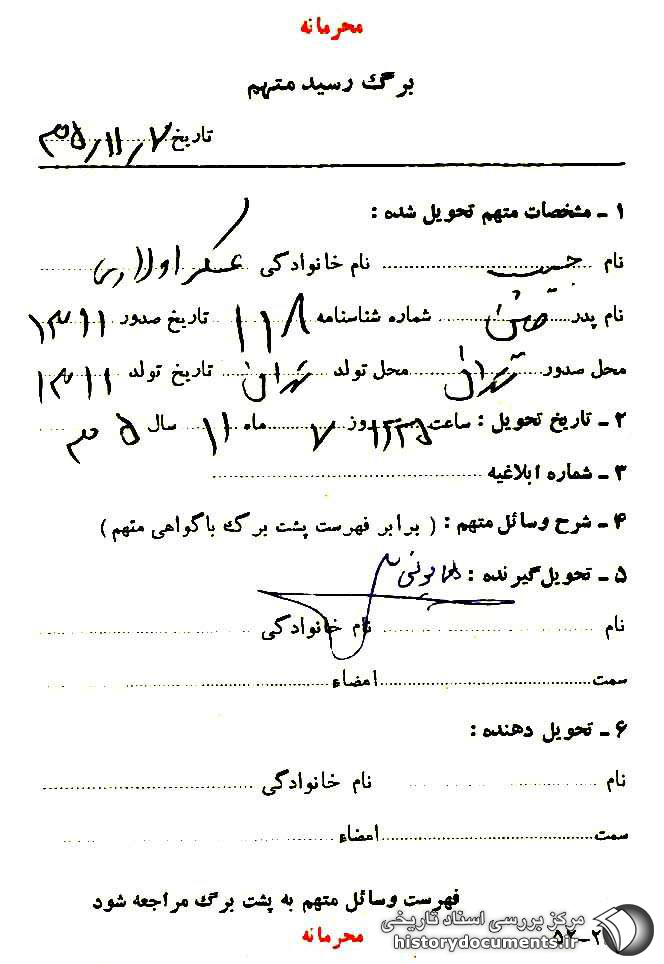 محرمانه
برگ رسید متهم
تاریخ ۳۵/۱۱/۷
۱ ـ مشخصات متهم تحویل شده :
نام حبیب نام خانوادگی عسکر اولادی
نام پدر شماره شناسنامه ۱۱۸ تاریخ صدور ۱۳۱۱
محل صدور تهران محل تولد تهران تاریخ تولد ۱۳۱۱
۲ ـ تاریخ تحویل : ساعت روز ۷ ماه ۱۱ سال ۳۵
۳ ـ شماره ابلاغیه
۴ ـ شرح وسائل متهم : ( برابر فهرست پشت برگ با گواهی متهم )
۵ ـ تحویل گیرنده :
نام نام خانوادگی
سمت امضاء
۶ ـ تحویل دهنده :
نام نام خانوادگی
سمت امضاء
فهرست وسائل متهم به پشت برگ مراجعه شود
محرمانه
مرکز بررسی اسناد تاریخی
historydocuments.ir